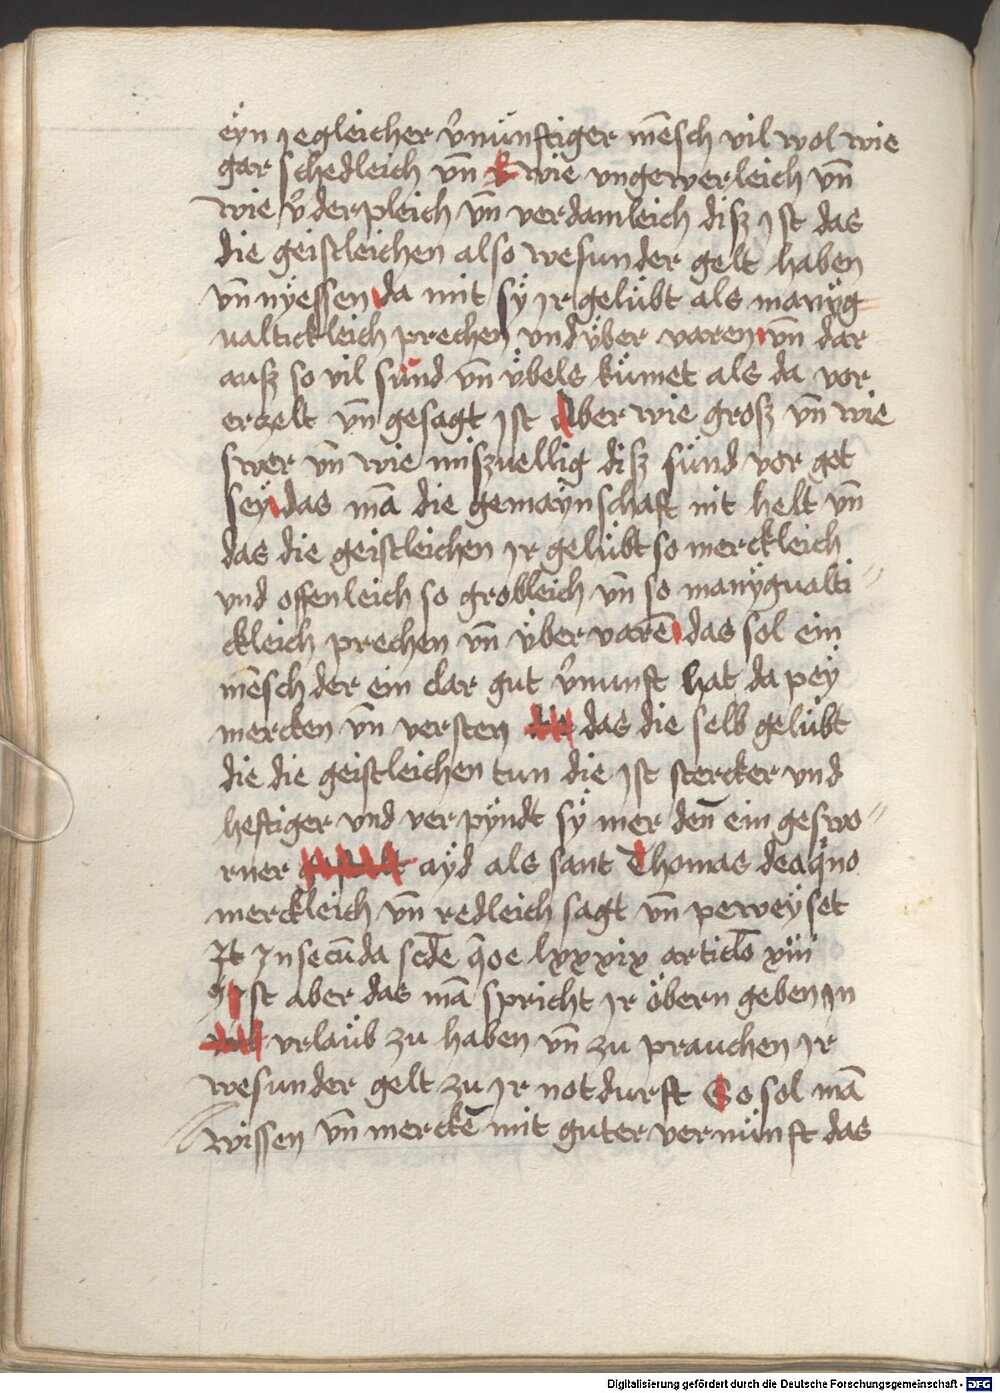 eÿn yegleicher v̾nünftiger mēsch vil wol wie
gar schedleich vn̄ wie vngewerleich vn̄
wie v̾derpleich vn̄ verdamleich disz yst das
die geistleichen also wesunder gelt haben
vn̄ nÿessen da mit sÿ yr gelübt als manÿg
ualtickleich prechen vnd über varen vn̄ dar
ausz so vil sünd vn̄ übels kümet als da vor
erzelt vn̄ gesagt yst Aber wie grosz vn̄ wie
swer vn̄ wie miszuellig disz sünd vor got
seÿ das mā die gemaÿnschaft nit helt vn̄
das die geistleichen yr gelübt so merckleich
vnd offenleich so grobleich vn̄ so manÿgualti
ckleich prechen vn̄ über varē das sol ein
mēsch der ein clar gut v̾nunft hat da peÿ
mercken vn̄ versten das die selb gelübt
die die geistleichen tun die yst stercker vnd
heftiger vnd ver pÿndt sÿ mer den̄ ein geswo
rner aÿd als sant Thomas deaqͥno
merckleich vn̄ redleich sagt vn̄ peweÿset
It̄ Jn secūda scd̄e q̄oe lxxxix articl̄o xiii
Jst aber das mā spricht yr öbern geben yn
vrlaüb zu haben vn̄ zu prauchen yr
wesunder gelt zu yr notdurft So sol mā
wissen vn̄ merckē mit guter vernünft das
Digitalisierung gefördert durch die Deutsche Forschungsgemeinschaft - DFG